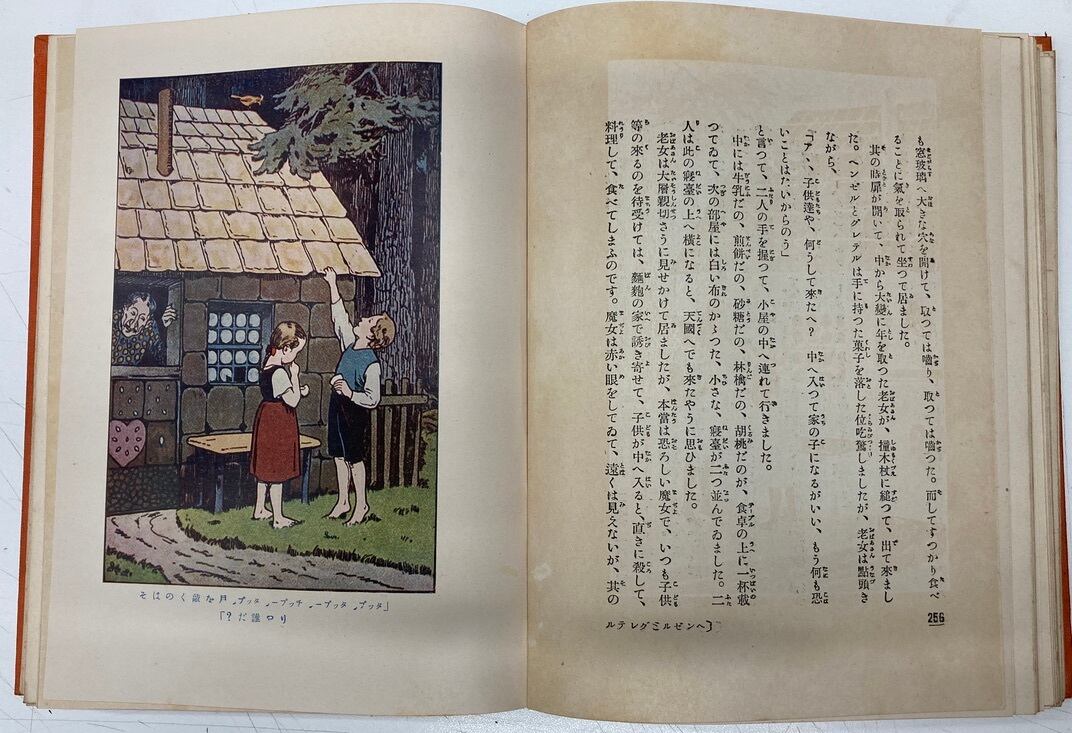 も窓玻璃へ大きな穴を開けて、取つては嚙り、取つては嚙つた。而してすつかり食べ
ることに氣を取られて坐つて居ました。
其の時扉が開いて、中から大變に年を取つた老女が、撞木杖に縋つて、出て來まし
た。ヘンゼルとグレテルは手に持つた菓子を落した位吃驚しましたが、老女は點頭き
ながら、
「コアン、子供達や、何うして來たへ? 中へ入つて家の子になるがいい、もう何も恐
いことはないからのう」
と言つて、二人の手を握つて、小屋の中へ連れて行きました。
中には牛乳だの、煎餅だの、砂糖だの、林檎だの、胡桃だのが、食卓の上に一杯載
つてゐて、次の部屋には白い布のかゝつた、小さな、寢臺が二つ並んでゐました。二
人は此の寢臺の上へ橫になると、天國へでも來たやうに思ひました。
老女は大層親切さうに見せかけて居ましたが、本當は恐ろしい魔女で、いつも子供
等の來るのを待受けては、麵麭の家で誘き寄せて、子供が中へ入ると、直きに殺して、
料理して、食べてしまふのです。魔女は赤い眼をしてゐて、遠くは見えないが、其の
256
ルテレグミルゼンヘ
そはのく敲を戸
「?だ誰